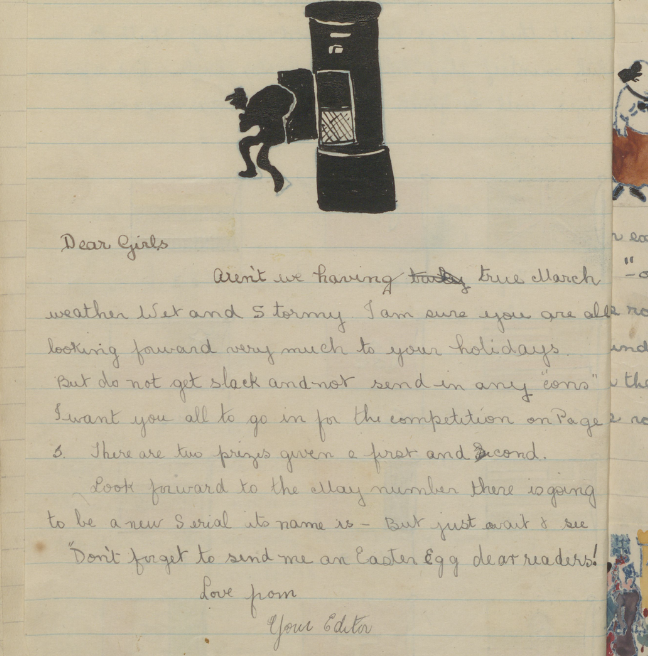 Dear Girls
Aren't we having true March
weather Wet and Stormy. I am sure you are all
looking forward very much to your holidays.
But do not get slack and not send in any "cons"
I want you all to go in for the competition on Page
3. There are two prizes given a first and Second.
Look forward to the May number there is going
to be a new Serial its name is - But just wait & see
"Don't forget to send me an Easter Egg dear readers!
Love from
Your Editor